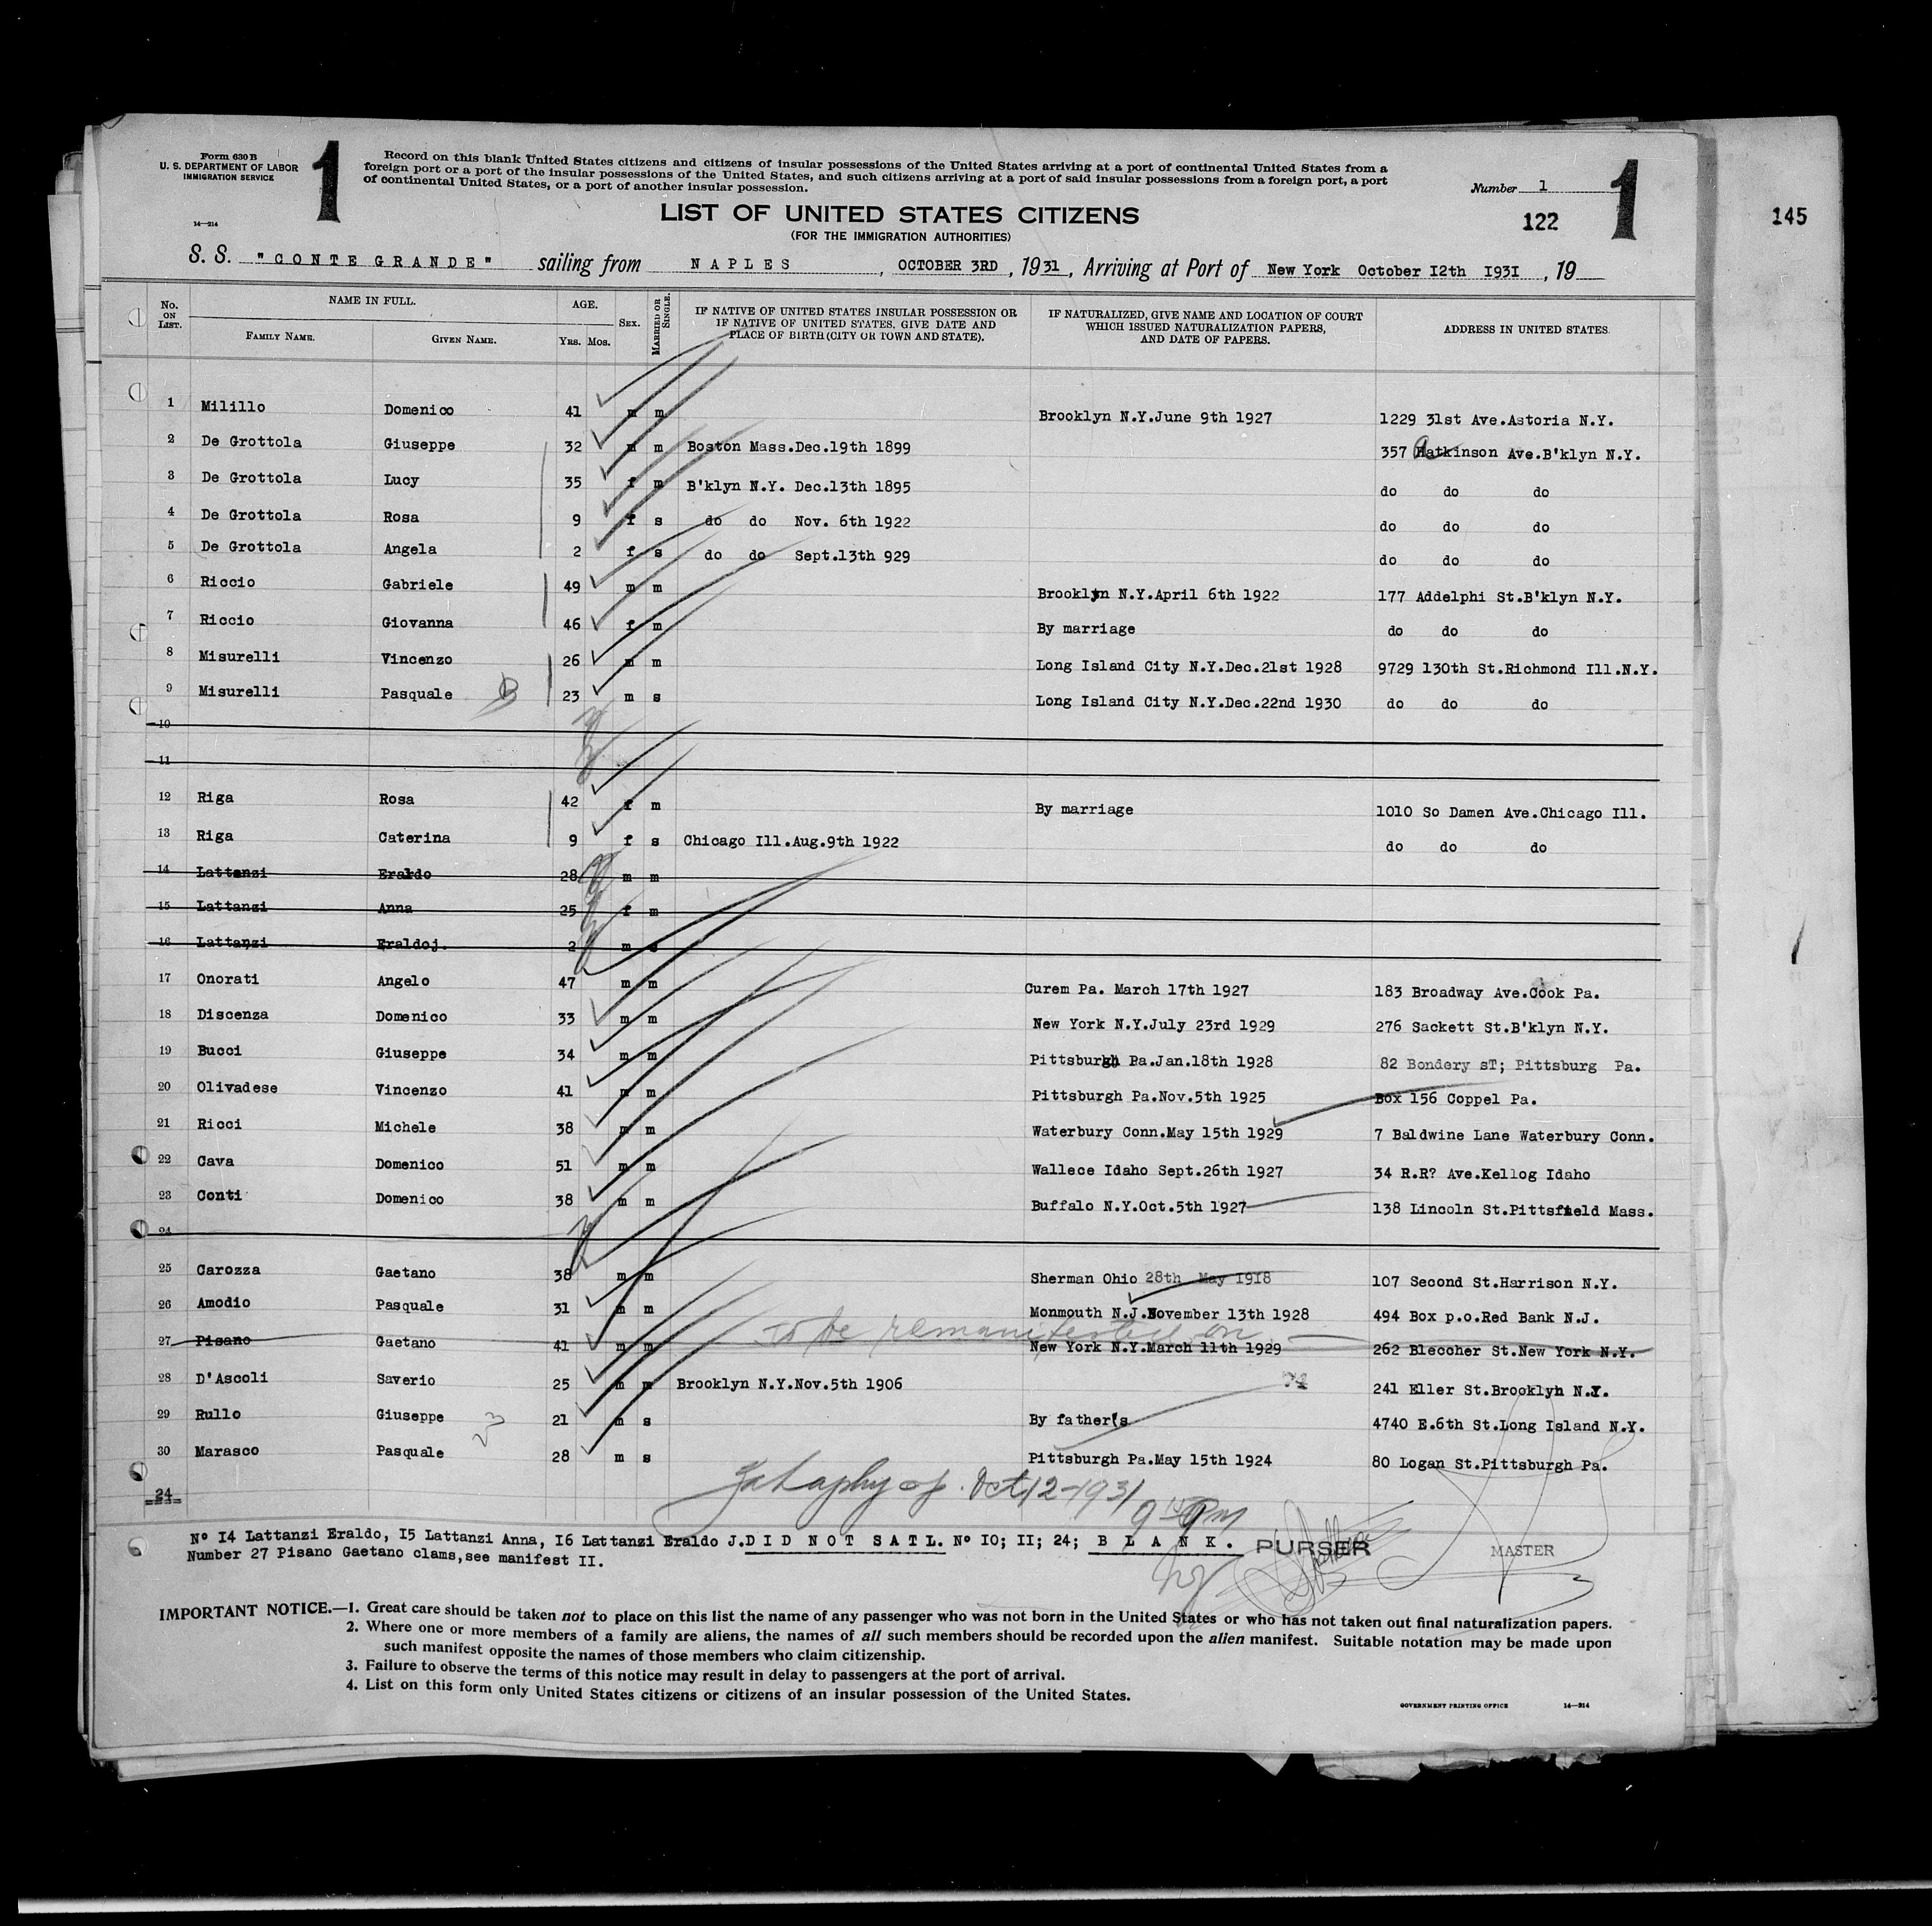 Form 630 B
U. S. DEPARTMENT OF LABOR
IMMIGRATION SERVICE
14—214
1
Record on this blank United States citizens and citizens of insular possessions of the United States arriving at a port of continental United States from a
foreign port or a port of the insular possessions of the United States, and such citizens arriving at a port of said insular possessions from a foreign port, a port
of continental United States, or a port of another insular possession.
Number 1
1
122
145
LIST OF UNITED STATES CITIZENS
(FOR THE IMMIGRATION AUTHORITIES)
S. S. "CONTE GRANDE" sailing from NAPLES, OCTOBER 3RD, 1931, Arriving at Port of New York October 12th 1931, 19
No. ON LIST. NAME IN FULL. FAMILY NAME. GIVEN NAME. AGE. YRS. MOS. SEX. MARRIED OR SINGLE. IF NATIVE OF UNITED STATES INSULAR POSSESSION OR IF NATIVE OF UNITED STATES, GIVE DATE AND PLACE OF BIRTH (CITY OR TOWN AND STATE). IF NATURALIZED, GIVE NAME AND LOCATION OF COURT WHICH ISSUED NATURALIZATION PAPERS, AND DATE OF PAPERS. ADDRESS IN UNITED STATES
1 Milillo Domenico 41 m m Brooklyn N.Y.June 9th 1927 1229 31st Ave.Astoria N.Y.
2 De Grottola Giuseppe 32 m m Boston Mass.Dec.19th 1899 357 Hatkinson Ave.B'klyn N.Y.
3 De Grottola Lucy 35 f m B'klyn N.Y. Dec.13th 1895 do do do
4 De Grottola Rosa 9 f s do do Nov. 6th 1922 do do do
5 De Grottola Angela 2 f s do do Sept.13th 929 do do do
6 Riccio Gabriele 49 m m Brooklyn N.Y.April 6th 1922 177 Addelphi St.B'klyn N.Y.
7 Riccio Giovanna 46 f m By marriage do do do
8 Misurelli Vincenzo 26 m m Long Island City N.Y.Dec.21st 1928 9729 130th St.Richmond Ill.N.Y.
9 Misurelli Pasquale B 23 m s Long Island City N.Y.Dec.22nd 1930 do do do
10
11
12 Riga Rosa 42 f m By marriage 1010 So Damen Ave.Chicago Ill.
13 Riga Caterina 9 f s Chicago Ill.Aug.9th 1922 do do do
14 Lattanzi Eraldo 28 m m
15 Lattanzi Anna 25 f m
16 Lattanzi Eraldoj. 2 m s
17 Onorati Angelo 47 m m Curem Pa. March 17th 1927 183 Broadway Ave.Cook Pa.
18 Discenza Domenico 33 m m New York N.Y.July 23rd 1929 276 Sackett St.B'klyn N.Y.
19 Bucci Giuseppe 34 m m Pittsburgh Pa.Jan.18th 1928 82 Bondery sT; Pittsburg Pa.
20 Olivadese Vincenzo 41 m m Pittsburgh Pa.Nov.5th 1925 Box 156 Coppel Pa.
21 Ricci Michele 38 m m Waterbury Conn.May 15th 1929 7 Baldwine Lane Waterbury Conn.
22 Cava Domenico 51 m m Wallece Idaho Sept.26th 1927 34 R.R? Ave.Kellog Idaho
23 Conti Domenico 38 m m Buffalo N.Y.Oct.5th 1927 138 Lincoln St.Pittsfield Mass.
24
25 Carozza Gaetano 38 m m Sherman Ohio 28th May 1918 107 Second St.Harrison N.Y.
26 Amodio Pasquale 31 m m Monmouth N.J.November 13th 1928 494 Box p.o.Red Bank N.J.
to be remanifested on
27 Pisano Gaetano 41 m m New York N.Y.March 11th 1929 262 Bleccher St.New York N.Y.
28 D'Ascoli Saverio 25 m m Brooklyn N.Y.Nov.5th 1906 241 Eller St.Brooklyn N.Y.
29 Rullo Giuseppe 21 m s By father's 4740 E.6th St.Long Island N.Y.
30 Marasco Pasquale 28 m s Pittsburgh Pa.May 15th 1924 80 Logan St.Pittsburgh Pa.
24
Oct 12-1931
Nº 14 Lattanzi Eraldo, 15 Lattanzi Anna, 16 Lattanzi Eraldo J.DID NOT SATL. Nº 10; 11; 24; BLANK. PURSER MASTER
Number 27 Pisano Gaetano clams,see manifest II.
IMPORTANT NOTICE.—1. Great care should be taken not to place on this list the name of any passenger who was not born in the United States or who has not taken out final naturalization papers.
2. Where one or more members of a family are aliens, the names of all such members should be recorded upon the alien manifest. Suitable notation may be made upon
such manifest opposite the names of those members who claim citizenship.
3. Failure to observe the terms of this notice may result in delay to passengers at the port of arrival.
4. List on this form only United States citizens or citizens of an insular possession of the United States.
GOVERNMENT PRINTING OFFICE 14—214